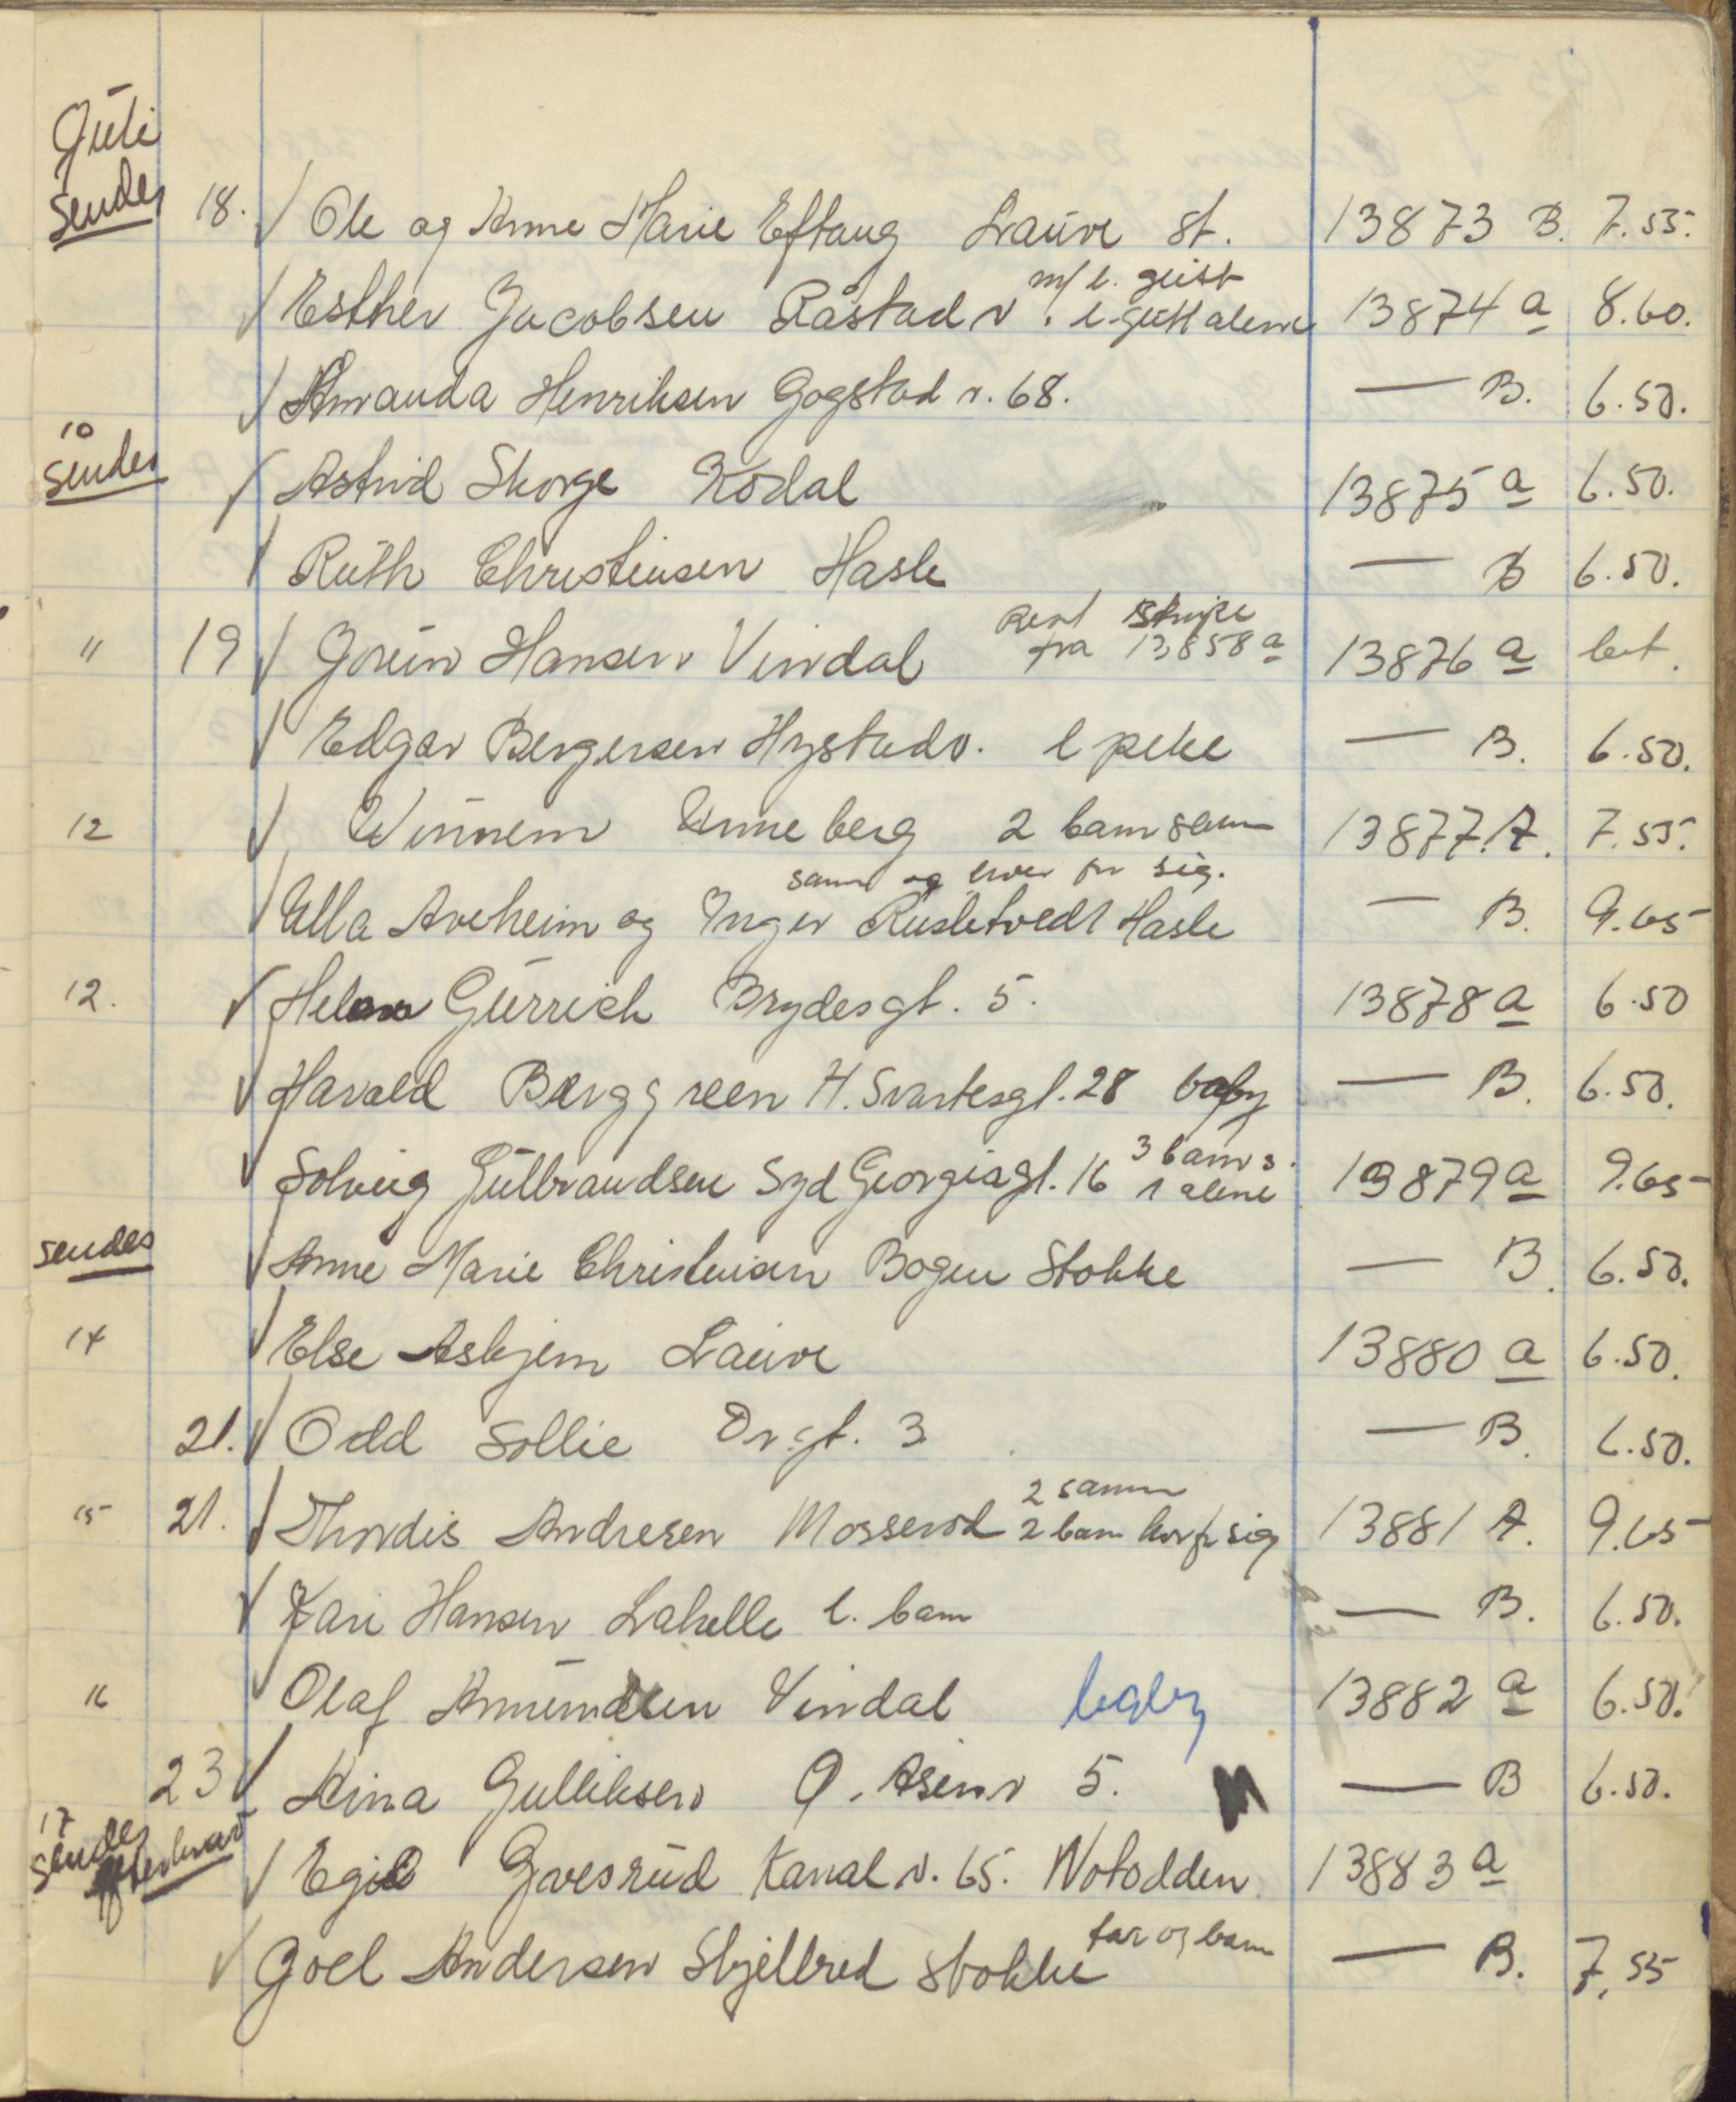 Juli
sendes 18. √ Ole og Anne Marie Eftang Lauve st. 13873 B. 7.55.
m/ l. gutt
√ Esther Jacobsen Råstad v. l. gutt alene 13874 a 8.60.
√ Amanda Henriksen Gogstad v. 68. — B. 6.50.
10
sendes √ Astrid Skorge Kodal 13875 a 6.50.
√ Ruth Christensen Hasle — B 6.50.
" 19 √ Jorun Hansen Vindal fra 13858 a 13876 a bet.
√ Edgar Bergersen Hystadv. l pike — B. 6.50.
12 √ Winnem Unneberg 2 barn sam 13877 A. 7.55.
sam og hver for sig.
√ Ella Aveheim og Inger Rusletvedt Hasle — B. 9.65
12. √ Helene Gurrich Brydesgt. 5. 13878 a 6.50
√ Harald Berggreen H. Svartesgt. 28 baby — B. 6.50.
3 barn s.
√ Solveig Gulbrandsen Syd Georgiagt. 16 1 alene 13879 a 9.65
sendes √ Anne Marie Christensen Bogen Stokke — B. 6.50.
14 √ Else Askjem Lauve 13880 a 6.50.
21. √ Odd Sollie Dr.gt. 3 — B. 6.50.
2 samm
15 21. √ Thordis Andresen Mosserød 2 barn hver f. sig 13881 A. 9.65
√ Kari Hansen Lahelle l. barn — B. 6.50.
16 √ Olaf Amundsen Vindal baby 13882 a 6.50.
23 √ Mina Gulliksen Ø. Åsenv 5. — B 6.50.
17
sendes
efterkrav √ Egil Gavesrud Kanal v. 65. Notodden 13883 a
far og barn
√ Joel Andersen Skjellred Stokke — B. 7.55